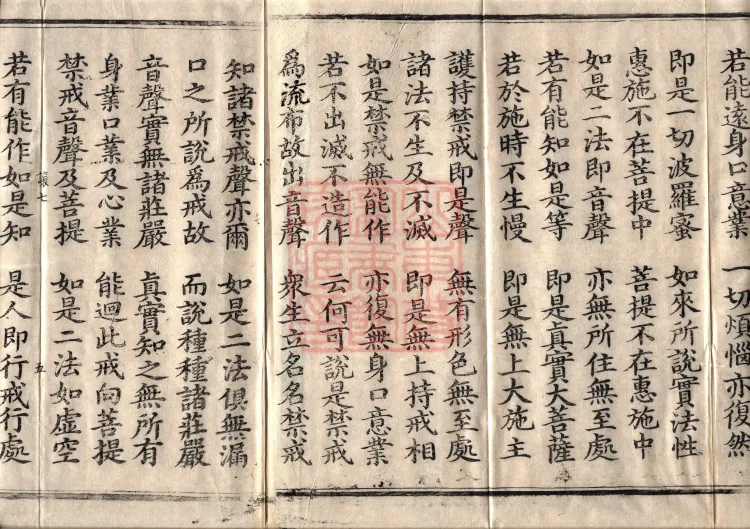 若能遠身口意業　一切煩惱亦復然
即是一切波羅蜜　如來所說實法性
惠施不在菩提中　菩提不在惠施中
如是二法即音聲　亦無所住無至處
若有能知如是等　即是真實大菩薩
若於施時不生慢　即是無上大施主
護持禁戒即是聲　無有形色無至處
諸法不生及不滅　即是無上持戒相
如是禁戒無能作　亦復無身口意業
若不出滅不造作　云何可說是禁戒
為流布故出音聲　衆生立名名禁戒
知諸禁戒聲亦爾　如是二法俱無漏
口之所說為戒故　而說種種諸莊嚴
音聲實無諸莊嚴　真實知之無所有
身業口業及心業　能迴此戒向菩提
禁戒音聲及菩提　如是二法如虛空
五
若有能作如是知　是人即行戒行處